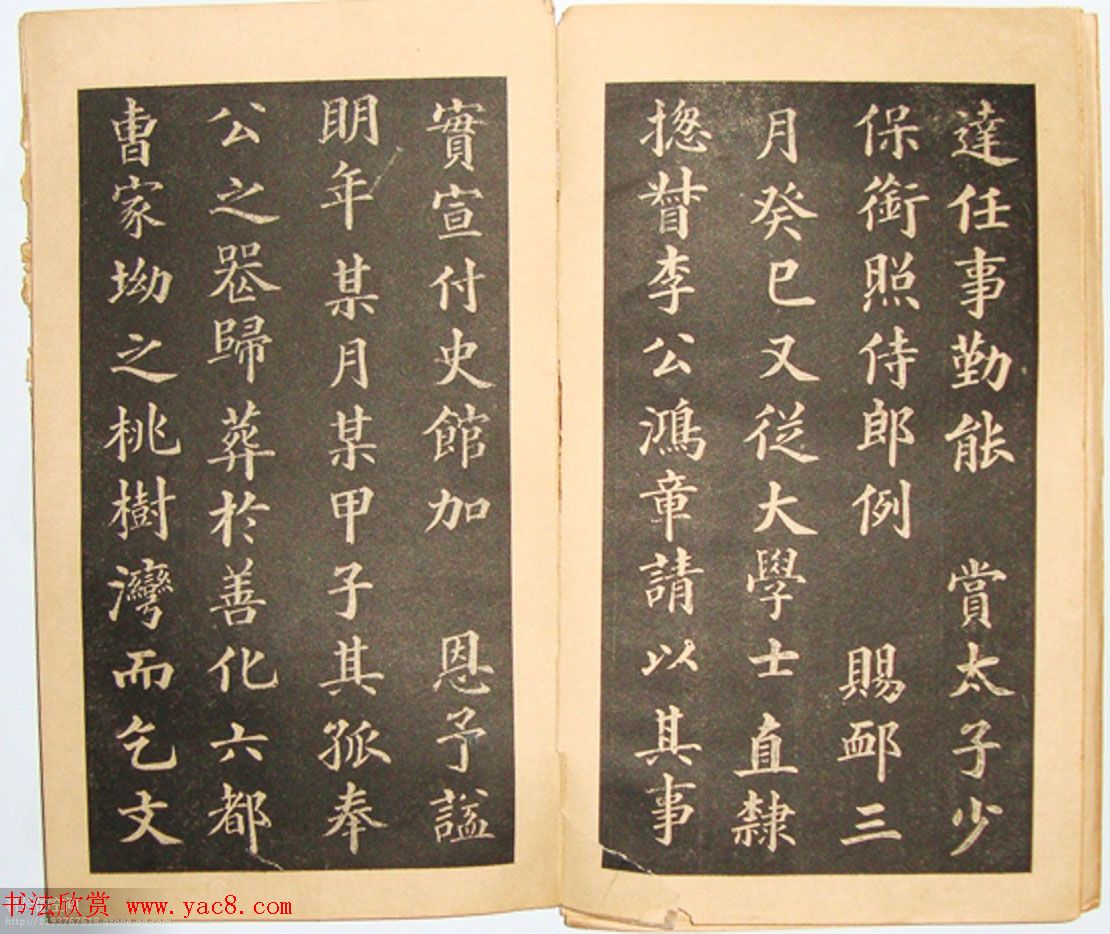 達任事勤能 賞太子少
保銜照侍郎例 賜卹三
月癸巳又從大學士直隸
揔督李公鴻章請以其事
實宣付史館加 恩予謚
明年某月某甲子其孤奉
公之器歸葬於善化六都
曹家坳之桃樹灣而乞文
书法欣赏 www.yac8.com